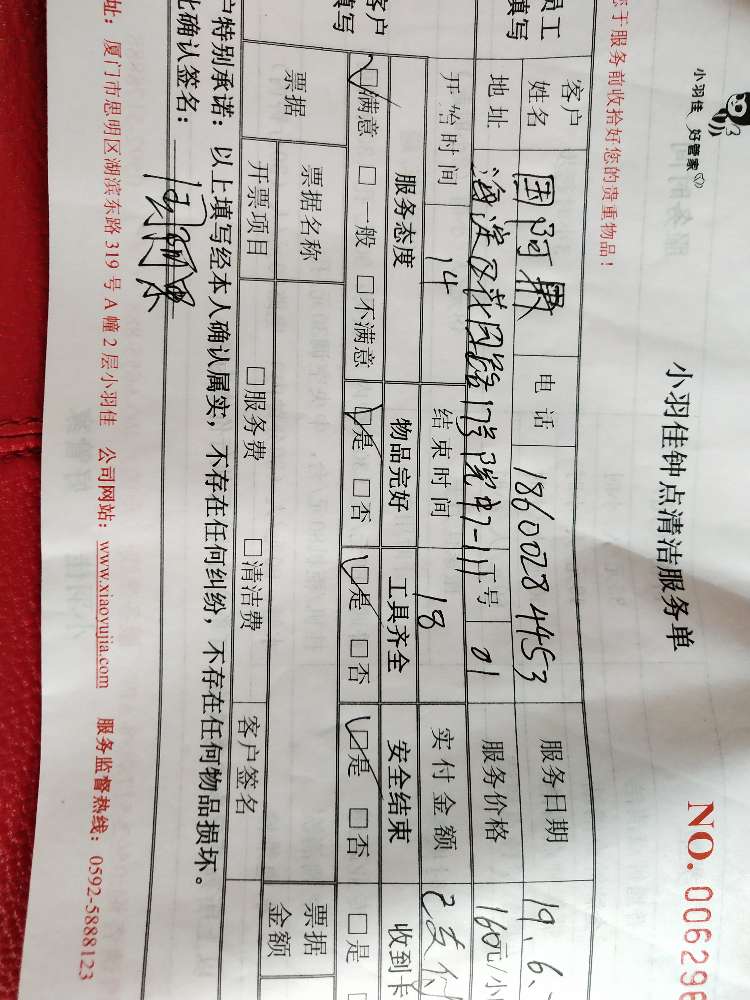 小羽佳 好管家
小羽佳钟点清洁服务单
NO. 006296
您于服务前收拾好您的贵重物品！
员工
填写
客户
姓名
电话
18600284453
服务日期
19.6.
地址
海淀区
工号
01
服务价格
160元/小
开始时间
14
结束时间
18
实付金额
已支付
客户
填写
服务态度
物品完好
工具齐全
安全结束
收到卡
☑满意 □一般 □不满意
☑是 □否
☑是 □否
☑是 □否
□是
票据
票据名称
票据
金额
开票项目
□服务费 □清洁费
客户签名
户特别承诺：以上填写经本人确认属实，不存在任何纠纷，不存在任何物品损坏。
此确认签名：
址：厦门市思明区湖滨东路 319 号 A 幢 2 层小羽佳 公司网站：www.xiaoyujia.com 服务监督热线：0592-5888123